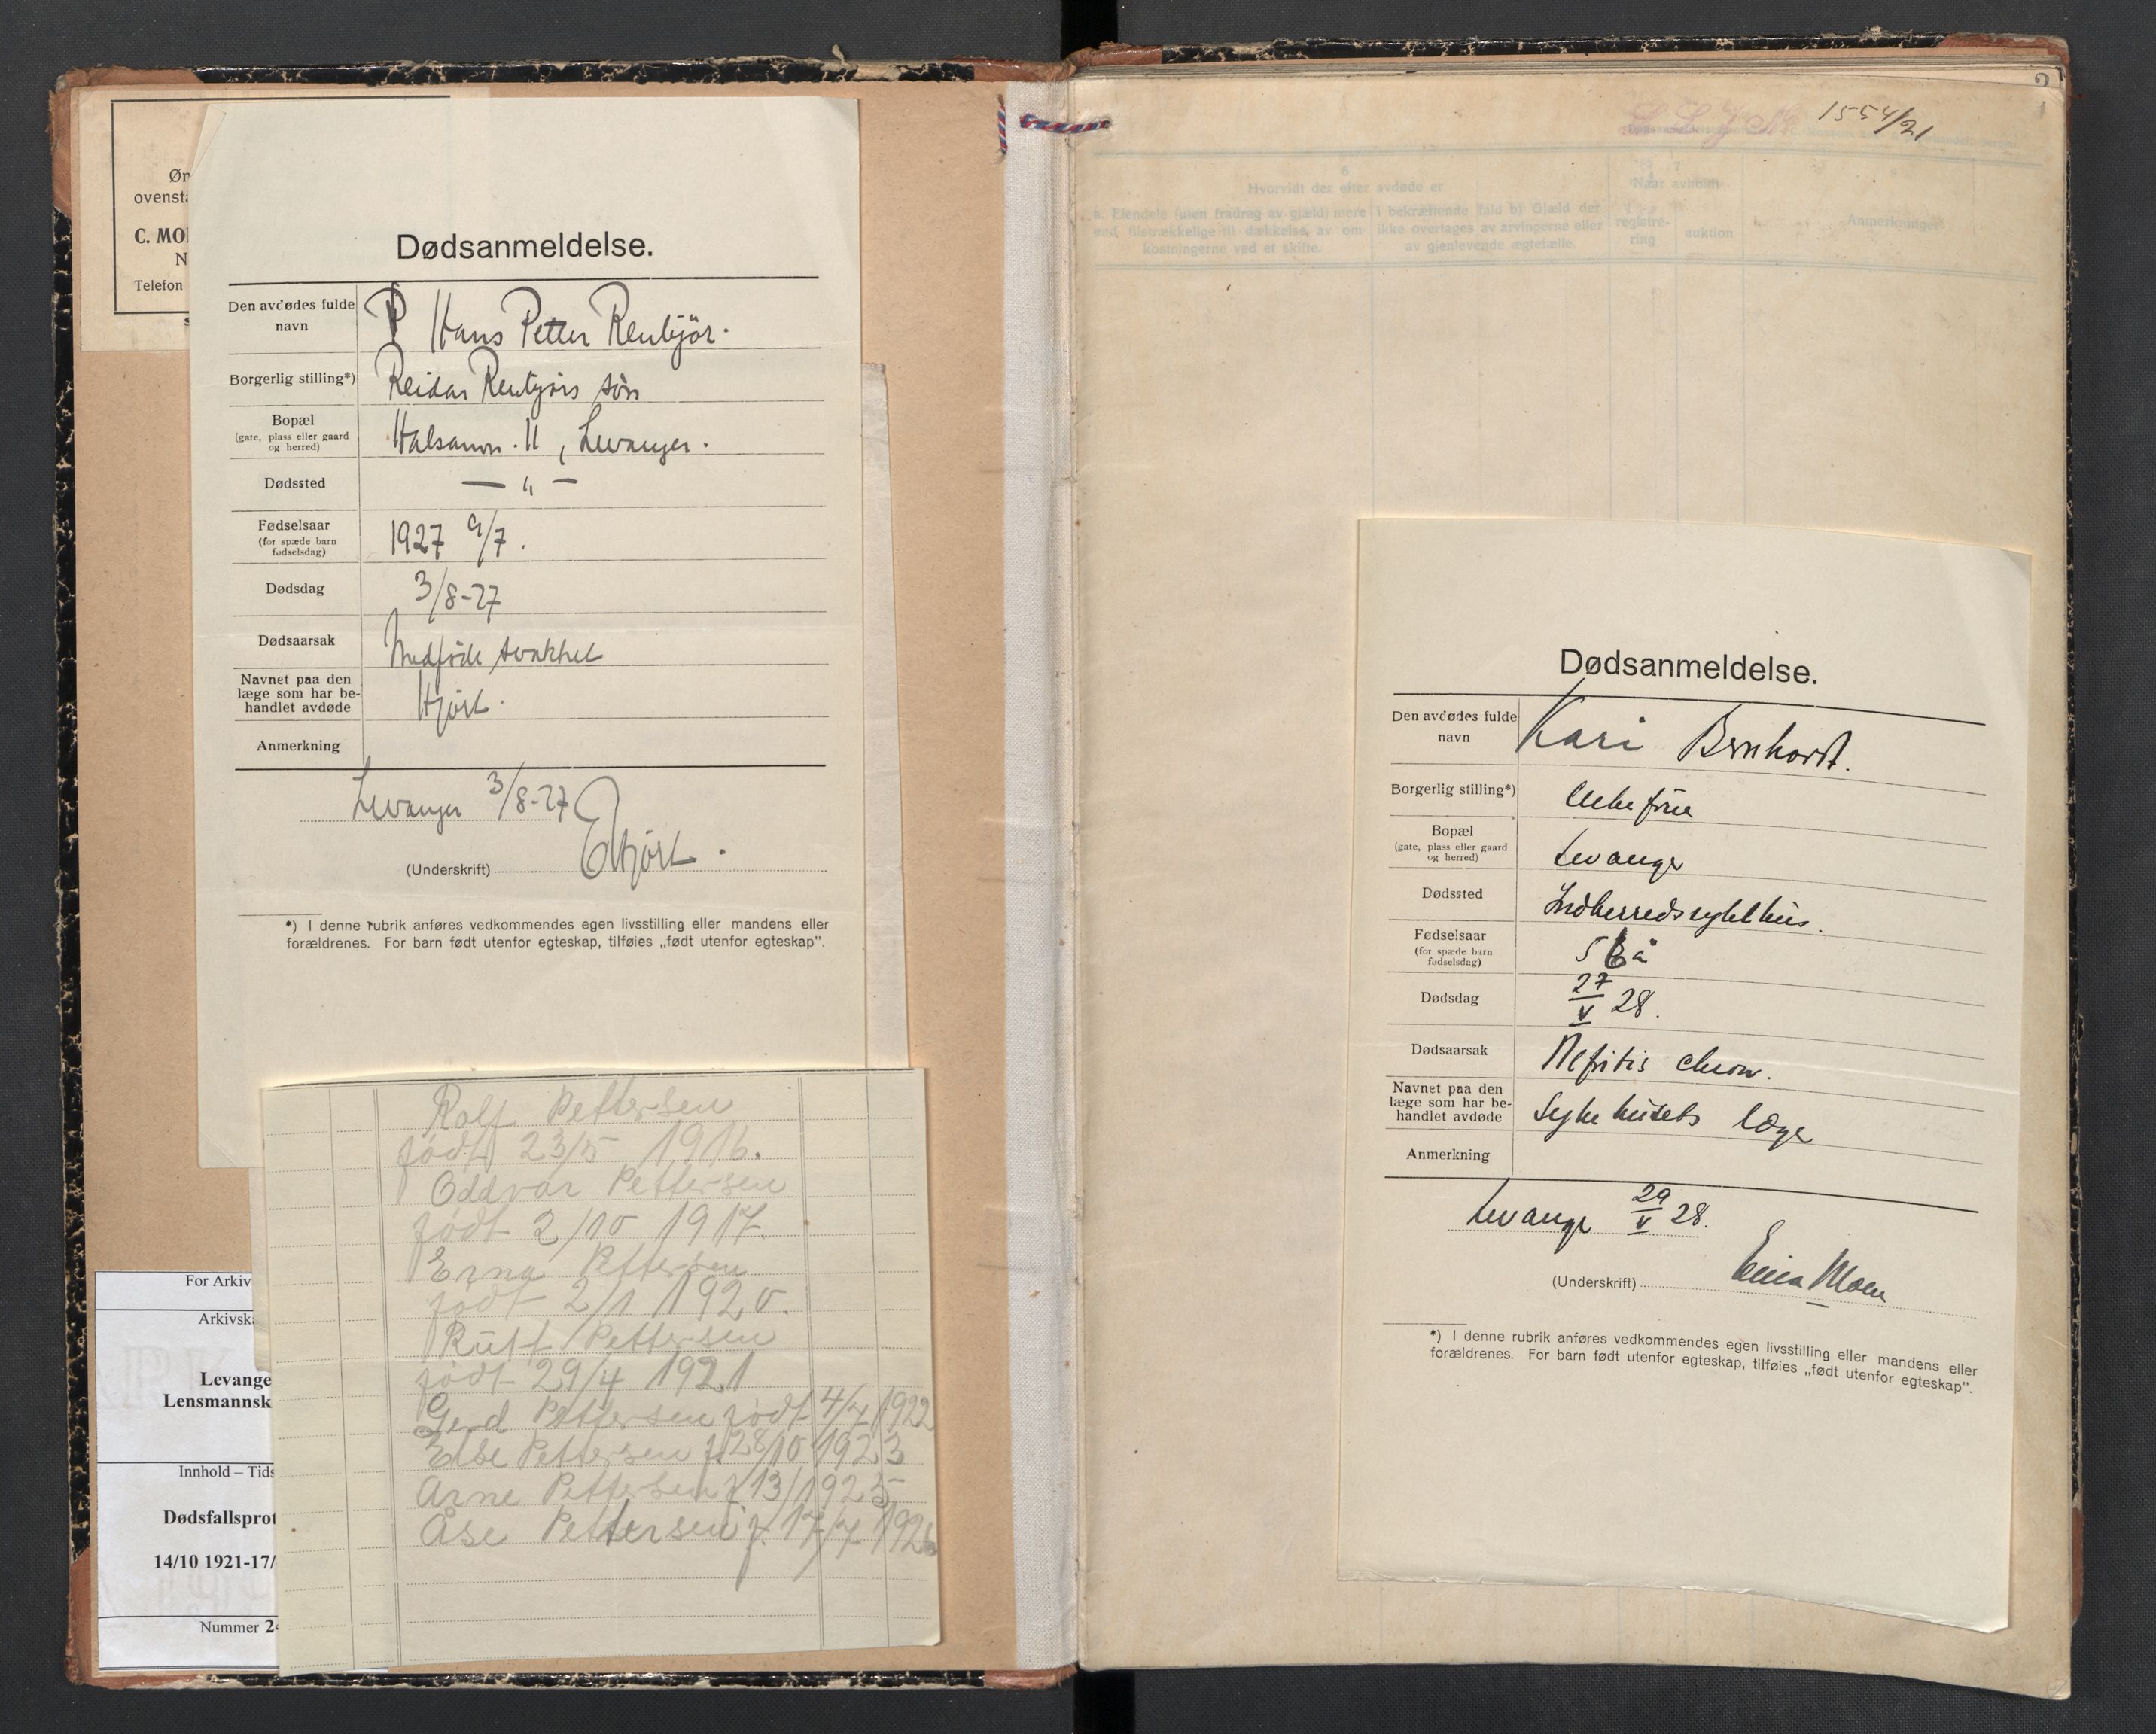 Øn
ovensta
C. MO
N
Telefon
Dødsanmeldelse.
Den avdødes fulde
navn
Hans Petter Renbjör.
Borgerlig stilling*)
Reidar Renbjørs søn
Bopæl
(gate, plass eller gaard
og herred)
Halsanv. 11, Levanger.
Dødssted
— „ —
Fødselsaar
(for spæde barn
fødselsdag)
1927 9/7.
Dødsdag
3/8-27
Dødsaarsak
Medfødt svakhet
Navnet paa den
læge som har be-
handlet avdøde
Hjort.
Anmerkning
Levanger 3/8-27
(Underskrift)
EHjort.
*) I denne rubrik anføres vedkommendes egen livsstilling eller mandens eller
forældrenes. For barn født utenfor egteskap, tilføies „født utenfor egteskap”.
Rolf Pettersen
født 23/5 1916.
Oddvar Pettersen
født 2/10 1917.
Erna Pettersen
født 2/1 1920.
Rutt Pettersen
født 29/4 1921
Gerd Pettersen født 4/7 1922
Else Pettersen f. 28/10 1923
Arne Pettersen f 13/1925
Åse Pettersen f. 17/7 1926
For Arkiv
Arkivsk
Levange
Lensmannsk
Innhold – Tids
Dødsfallsprot
14/10 1921-17/
Nummer 24
2
1554/21
6
Hvorvidt der efter avdøde er
a. Eiendele (uten fradrag av gjæld) mere
end tilstrækkelige til dækkelse av om-
kostningerne ved et skifte.
I bekræftende fald b) Gjæld der
ikke overtages av arvingerne eller
av gjenlevende ægtefælle.
7
Naar avholdt
registre-
ring
auktion
Anmerkninger
Dødsanmeldelse.
Den avdødes fulde
navn
Kari Brnhorst.
Borgerlig stilling*)
Enkefrue
Bopæl
(gate, plass eller gaard
og herred)
Levanger
Dødssted
Indherreds sykehus.
Fødselsaar
(for spæde barn
fødselsdag)
56 å
Dødsdag
27/V 28.
Dødsaarsak
Nefritis chron.
Navnet paa den
læge som har be-
handlet avdøde
Sykehusets læge
Anmerkning
Levanger 29/V 28.
(Underskrift)
Moen
*) I denne rubrik anføres vedkommendes egen livsstilling eller mandens eller
forældrenes. For barn født utenfor egteskap, tilføies „født utenfor egteskap”.